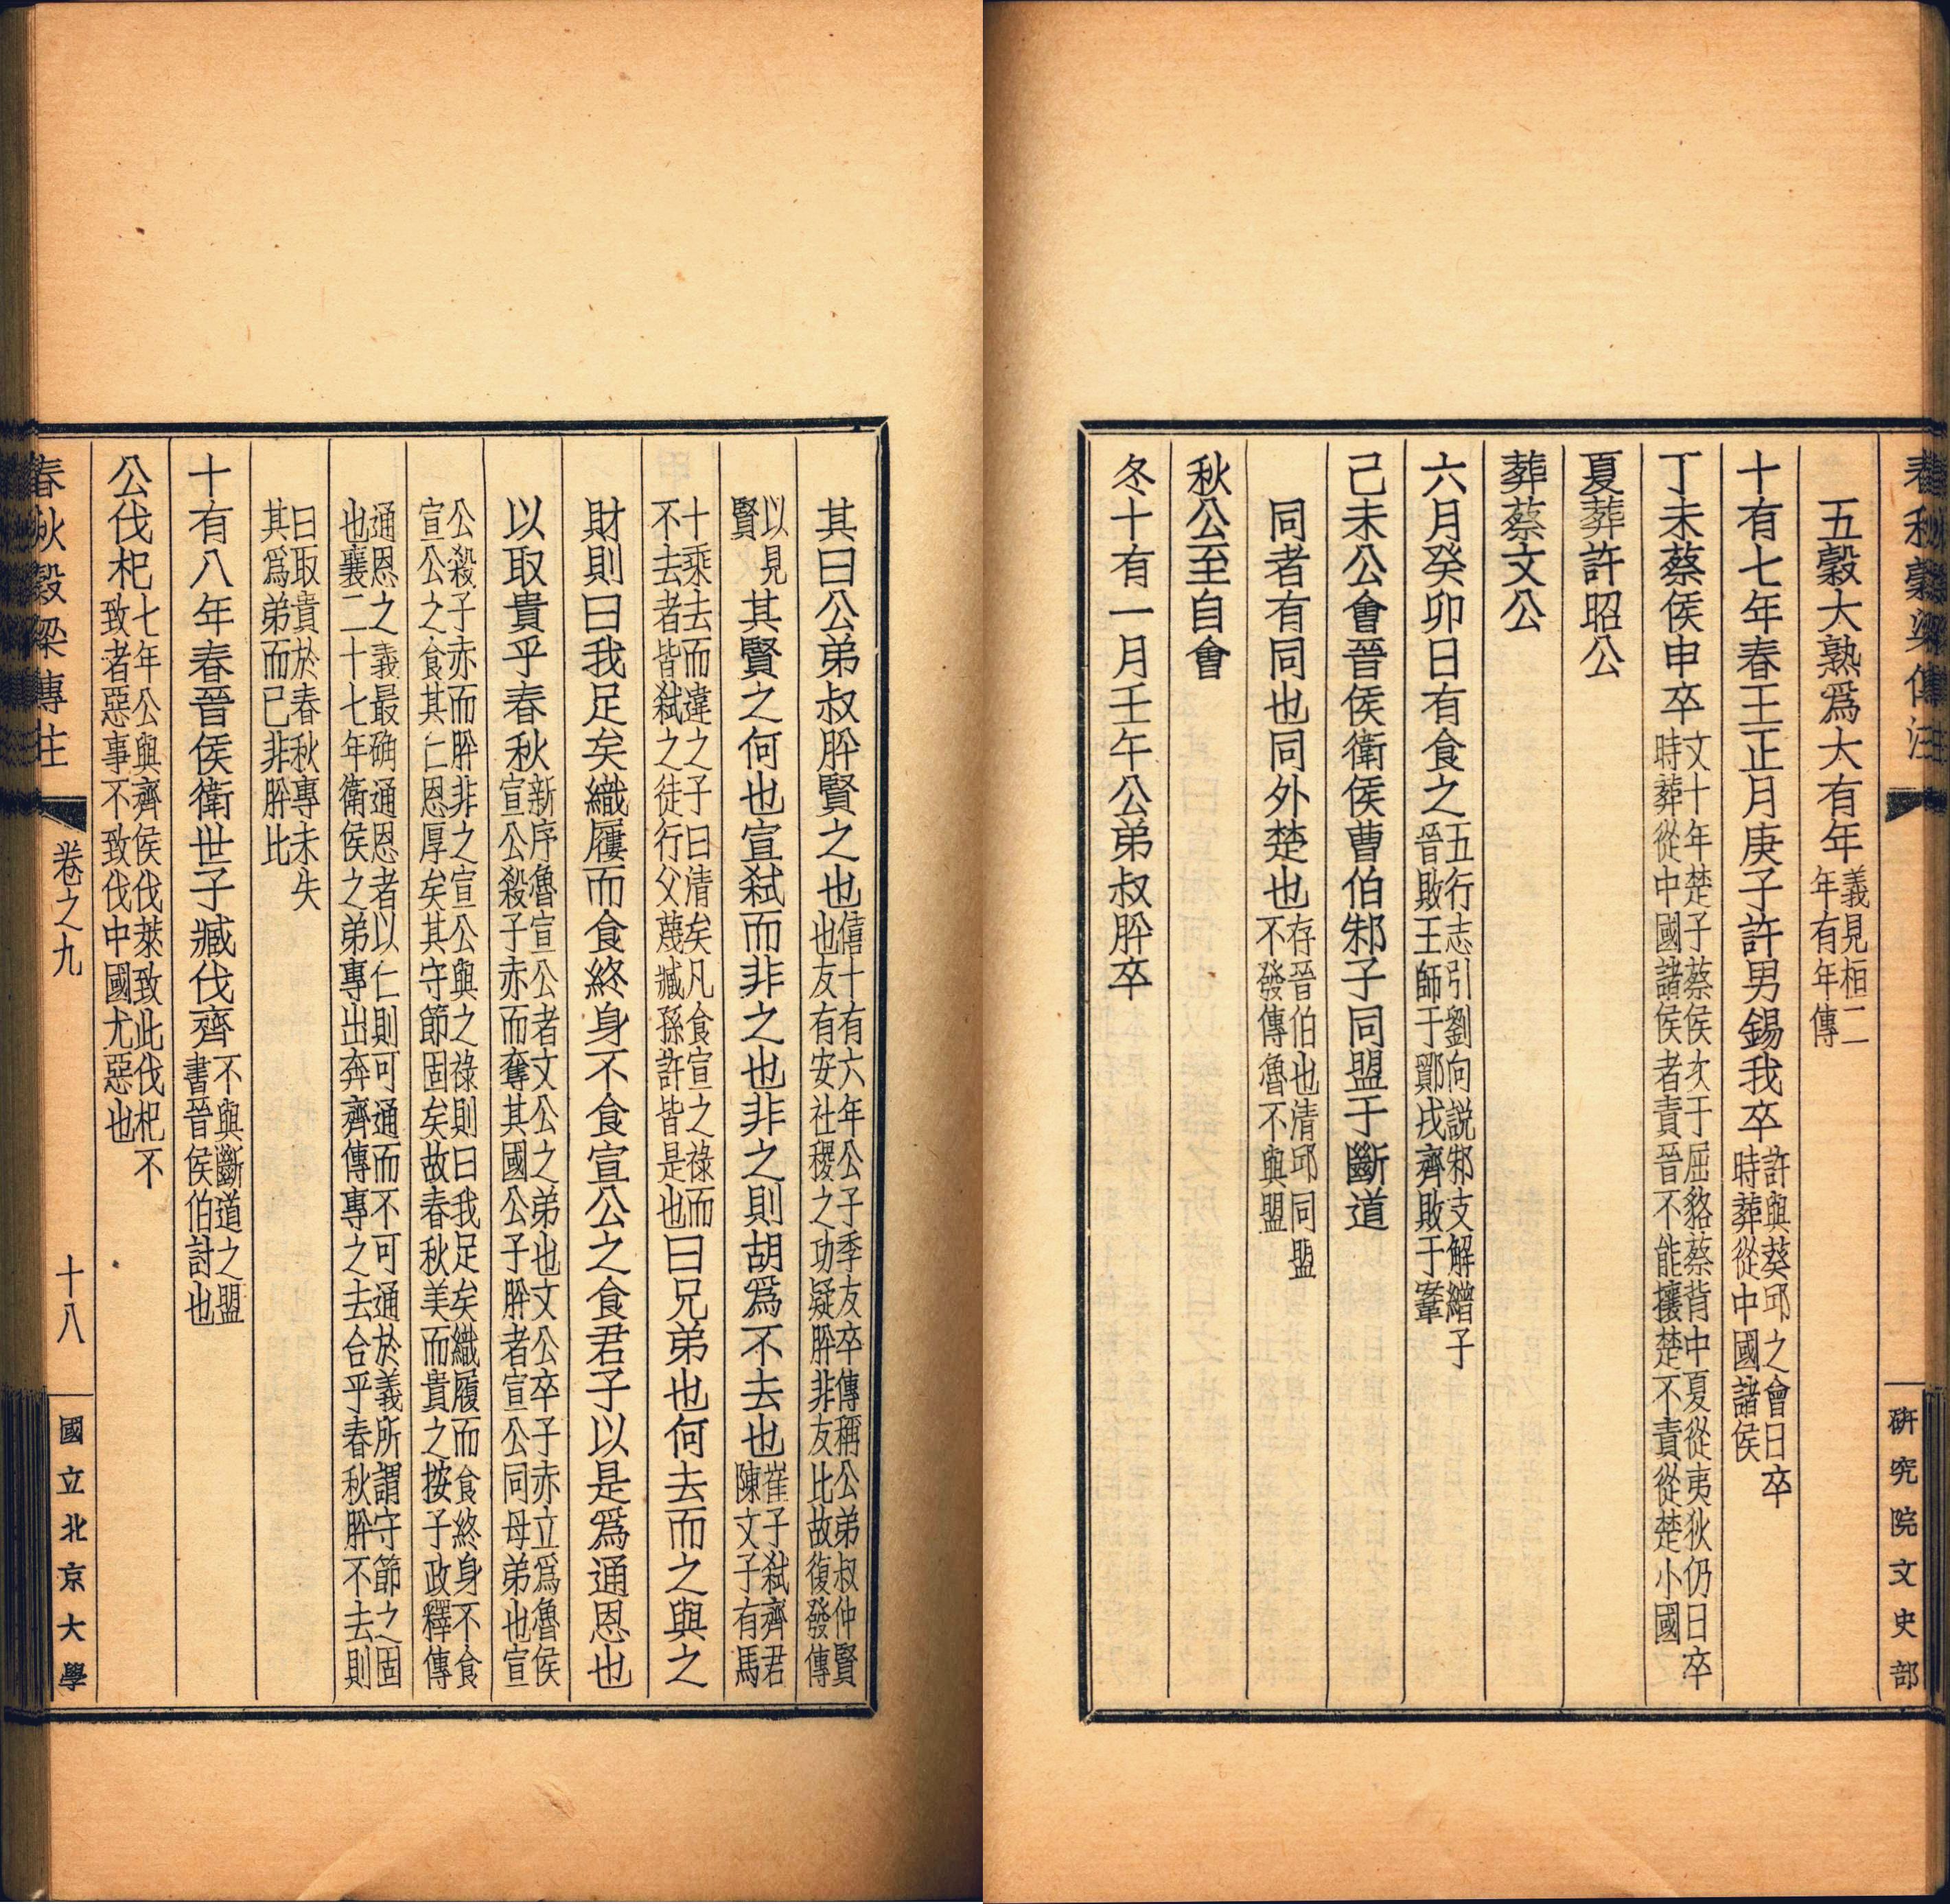 春秋穀梁傳注
研究院文史部
五穀大熟爲大有年義見桓二年有年傳
十有七年春王正月庚子許男錫我卒許與葵邱之會日卒時葬從中國諸侯
丁未蔡侯申卒文十年楚子蔡侯次于屈貉蔡背中夏從夷狄仍日卒時葬從中國諸侯者責晉不能攘楚不責從楚小國
夏葬許昭公
葬蔡文公
六月癸卯日有食之五行志引劉向説邾支解繒子晉敗王師于鄮戌齊敗于鞌
己未公會晉侯衛侯曹伯邾子同盟于斷道
同者有同也同外楚也存晉伯也清邱同盟不發傳魯不與盟
秋公至自會
冬十有一月壬午公弟叔肸卒
其曰公弟叔肸賢之也僖十有六年公子季友卒傳稱公弟叔仲賢也友有安社稷之功疑肸非友比故復發傳
以見賢其賢之何也宣弑而非之也非之則胡爲不去也崔子弑齊君陳文子有馬
十乘去而違之子曰清矣凡食宣之祿而不去者皆弑之徒行父蔑臧孫許皆是也曰兄弟也何去而之與之
財則曰我足矣織屨而食終身不食宣公之食君子以是爲通恩也
以取貴乎春秋新序魯宣公者文公之弟也文公卒子赤立爲魯侯宣公殺子赤而奪其國公子肸者宣公同母弟也宣
公殺子赤而肸非之宣公與之祿則曰我足矣織履而食終身不食宣公之食其仁恩厚矣其守節固矣故春秋美而貴之按子政釋傳
通恩之義最确通恩者以仁則可通而不可通於義所謂守節之固也襄二十七年衛侯之弟專出奔齊傳專之去合乎春秋肸不去則
曰取貴於春秋專未失其爲弟而已非肸比
十有八年春晉侯衛世子臧伐齊不與斷道之盟書晉侯伯討也
公伐杞七年公與齊侯伐萊致此伐杞不致者惡事不致伐中國尤惡也
春秋穀梁傳注
卷之九
十八
國立北京大學